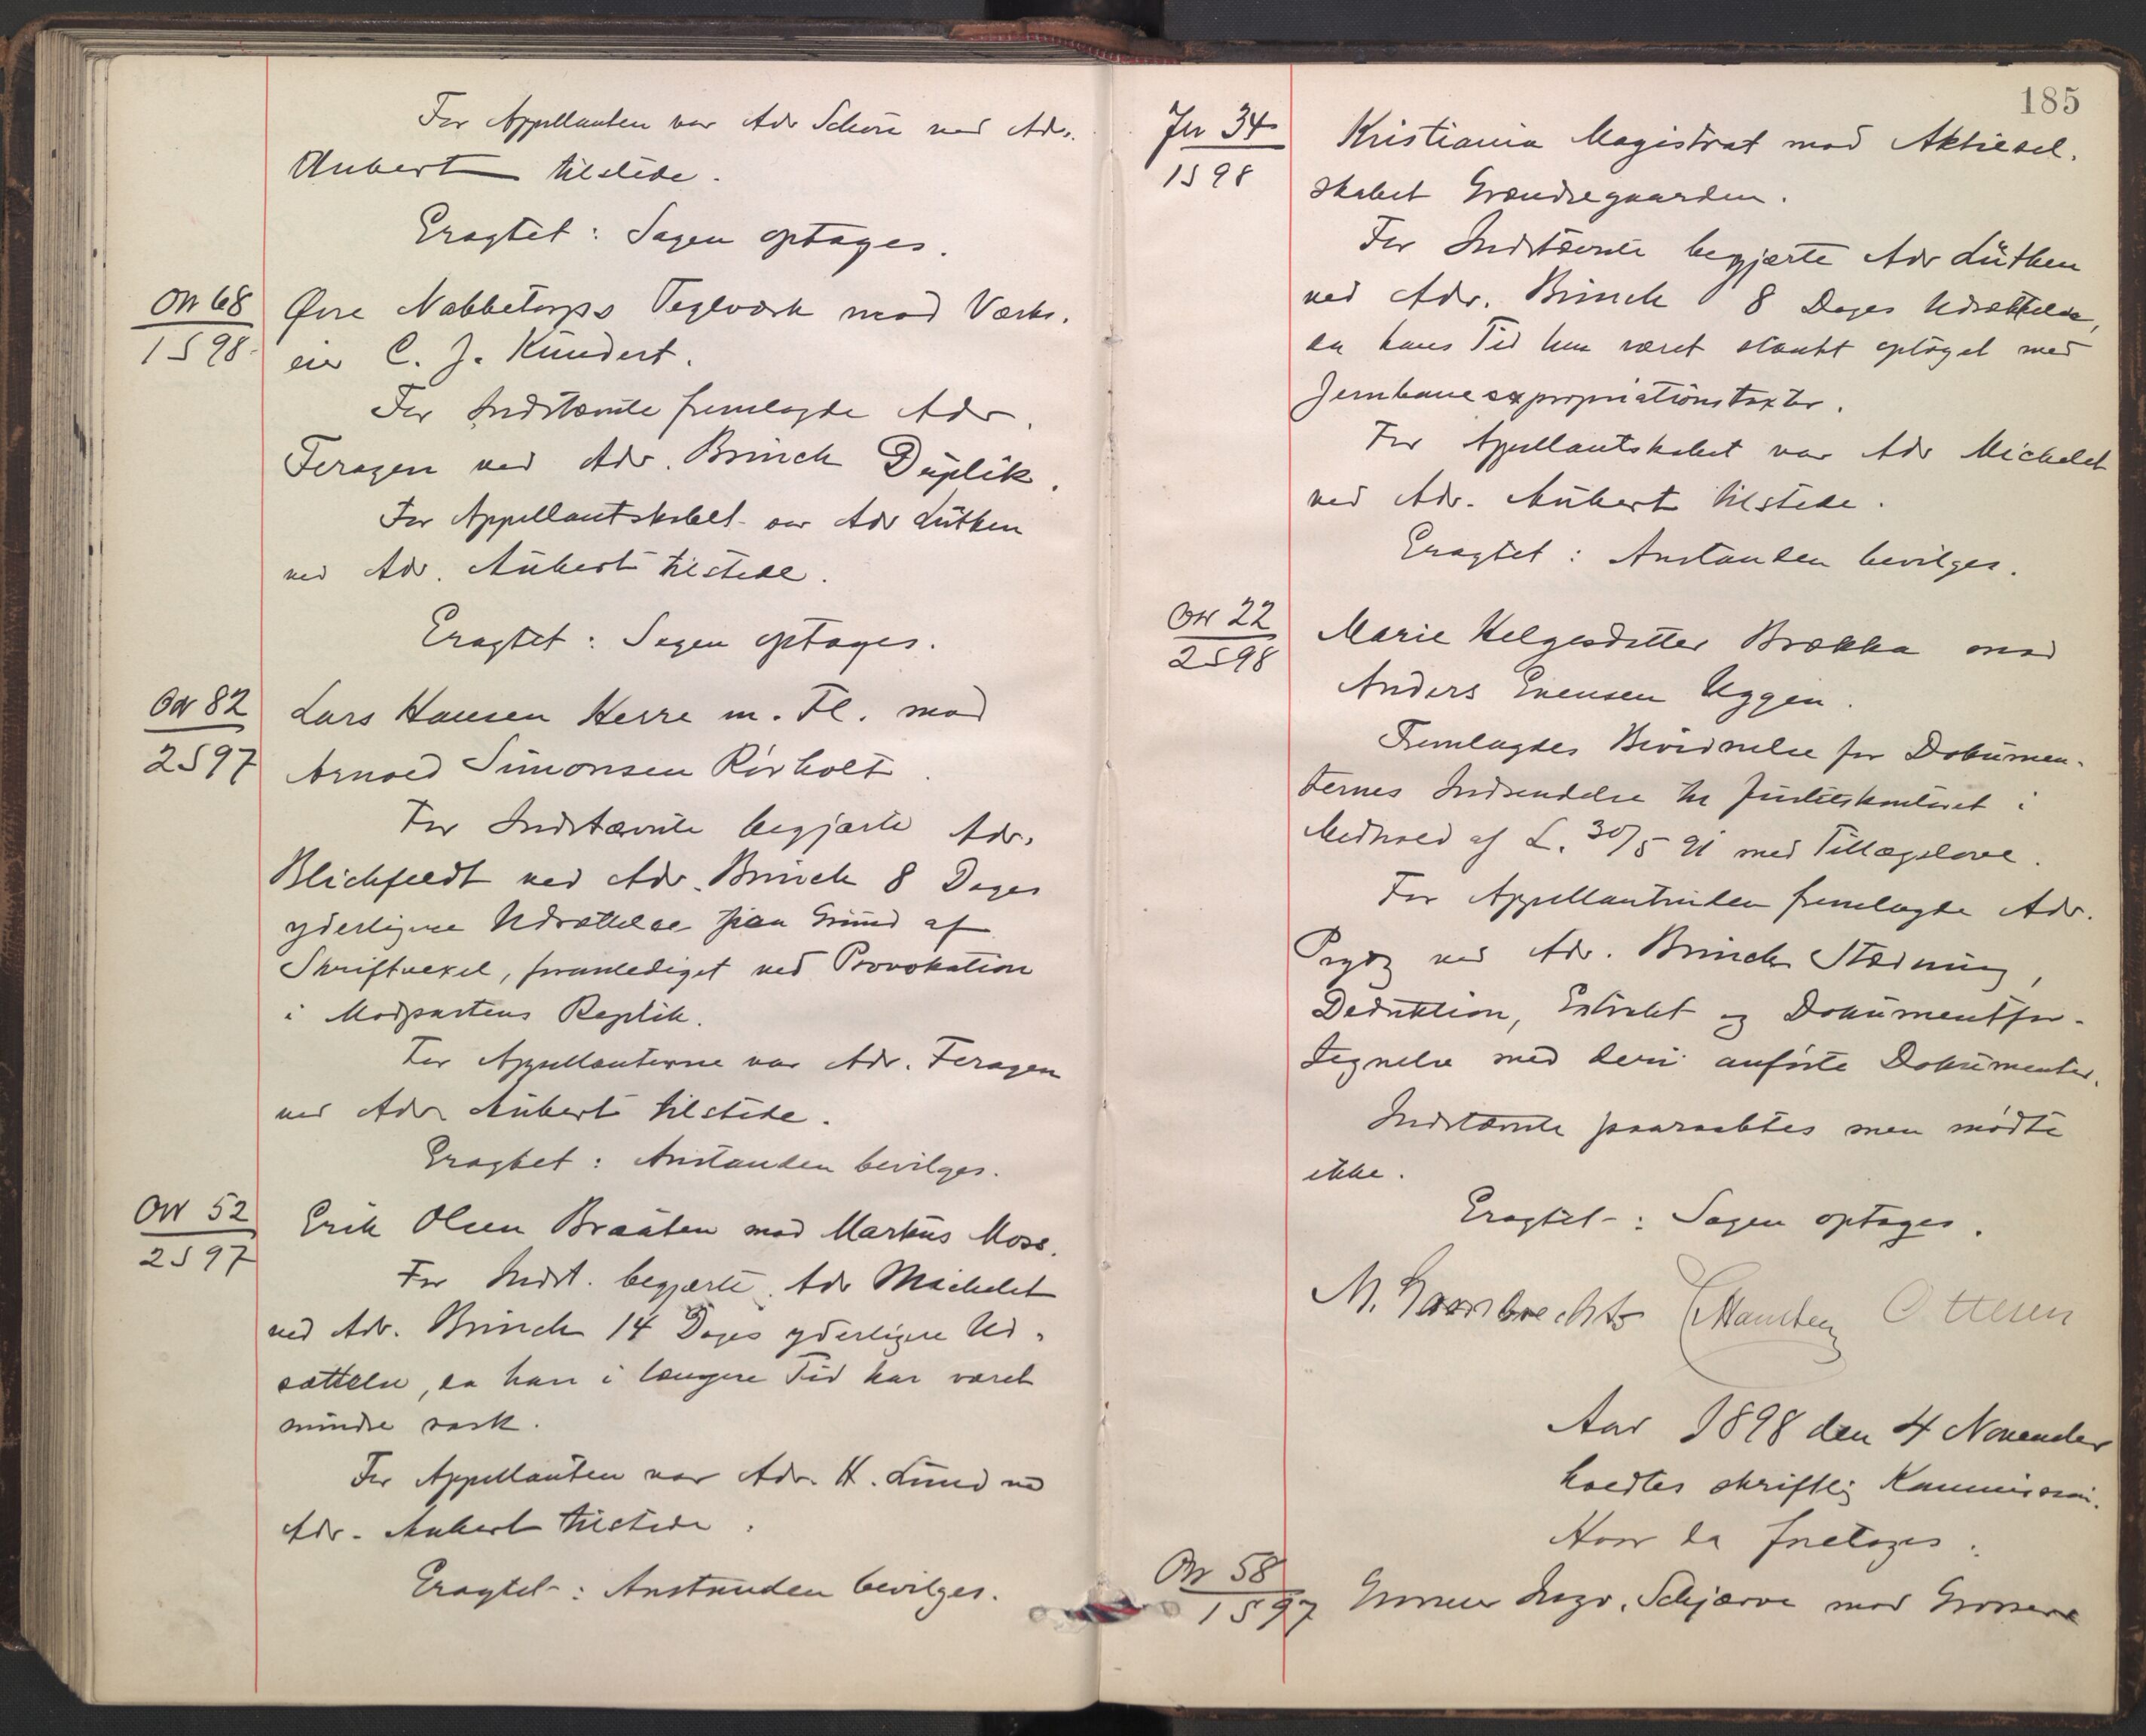 For Appellanten var Adv Schou ved Adv.
Aubert tilstede.
Eragtet: Sagen optages.
On 68 Øvre Nabbetorps Teglværk mod Værks-
1 S 98. eier C. J. Kundert.
For Indstævnte fremlagde Adv.
Feragen ved Adv. Brinch Duplik.
For Appellantskabet var Adv Lütken
ved Adv. Aubert tilstede.
Eragtet: Sagen optages.
On 82 Lars Hansen Herre m. Fl. mod
2 S 97 Arnold Simonsen Rørholt.
For Indstævnte begjærte Adv.
Blichfeldt ved Adv. Brinch 8 Dages
yderligere Udsættelse paa Grund af
Skriftvexel, foranlediget ved Provokation
i Modpartens Replik.
For Appellanterne var Adv. Feragen
ved Adv Aubert tilstede.
Eragtet: Anstanden bevilges.
On 52 Erik Olsen Braaten mod Markus Moss.
2 S 97
For Indst. begjærte Adv Michelet
ved Adv. Brinch 14 Dages yderligere Ud-
sættelse, da han i længere Tid har været
mindre rask.
For Appellanten var Adv. H. Lund ved
Adv. Aubert tilstede.
Eragtet: Anstanden bevilges.
185
Jn 34 Kristiania Magistrat mod Aktiesel-
1 S 98 skabet Grændsegaarden.
For Indstævnte begjærte Adv Lütken
ved Adv. Brinch 8 Dages Udsættelse,
da hans Tid har været stærkt optaget med
Jernbaneexpropriationstaxter.
For Appellantskabet var Adv Michelet
ved Adv. Aubert tilstede.
Eragtet: Anstanden bevilges.
On 22 Marie Helgesdatter Brækka mod
2 S 98 Anders Evensen Uggen.
Fremlagdes Bevidnelse for Dokumen-
ternes Indsendelse til Justitskontoret i
Medhold af L. 30/5 91 med Tillægslove.
For Appellantinden fremlagde Adv.
Prydz ved Adv. Brinch Stævning,
Deduktion, Extrakt og Dokumentfor-
tegnelse med deri anførte Dokumenter.
Indstævnte paaraabtes men mødte
ikke.
Eragtet: Sagen optages.
M. Lambrechts Ottesen
Aar 1898 den 4 November
holdtes skriftlig Kommission.
Hvor da foretoges:
On 58 Schjærve mod
1 S 97